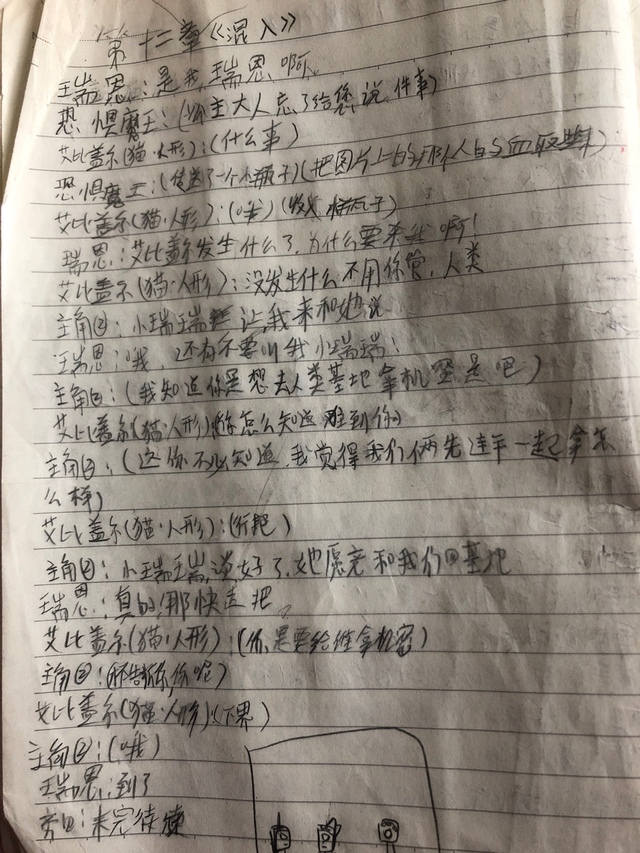 第十二章《混入》
瑞恩：是我，瑞恩啊
恐惧魔王：(你主大人忘了给您说件事)
艾比盖尔(猫·人形)：(什么事)
恐惧魔王：(传送了一个小瓶子)(把图片上的那人的血取些来)
艾比盖尔(猫·人形)：(哦)(收瓶子)
瑞恩：艾比盖尔发生什么了，为什么要杀我啊！
艾比盖尔(猫·人形)：没发生什么不用你管，人类
主角②：小瑞瑞 让我来和她说
瑞恩：哦，还有不要叫我小瑞瑞！
主角②：(我知道你是想去人类基地拿机密是吧)
艾比盖尔(猫·人形)(你怎么知道难到你)
主角②：(这你不必知道，我觉得我们俩先连手一起拿怎
么样)
艾比盖尔(猫·人形)：(行把)
主角②：小瑞瑞，说好了，她愿意和我们回基地
瑞恩：真的，那快走把
艾比盖尔(猫·人形)：(你是要给谁拿机密)
主角②：(不告诉你，你呢)
艾比盖尔(猫·人形)：(下界)
主角②：(哦)
瑞恩：到了
旁白：未完待续